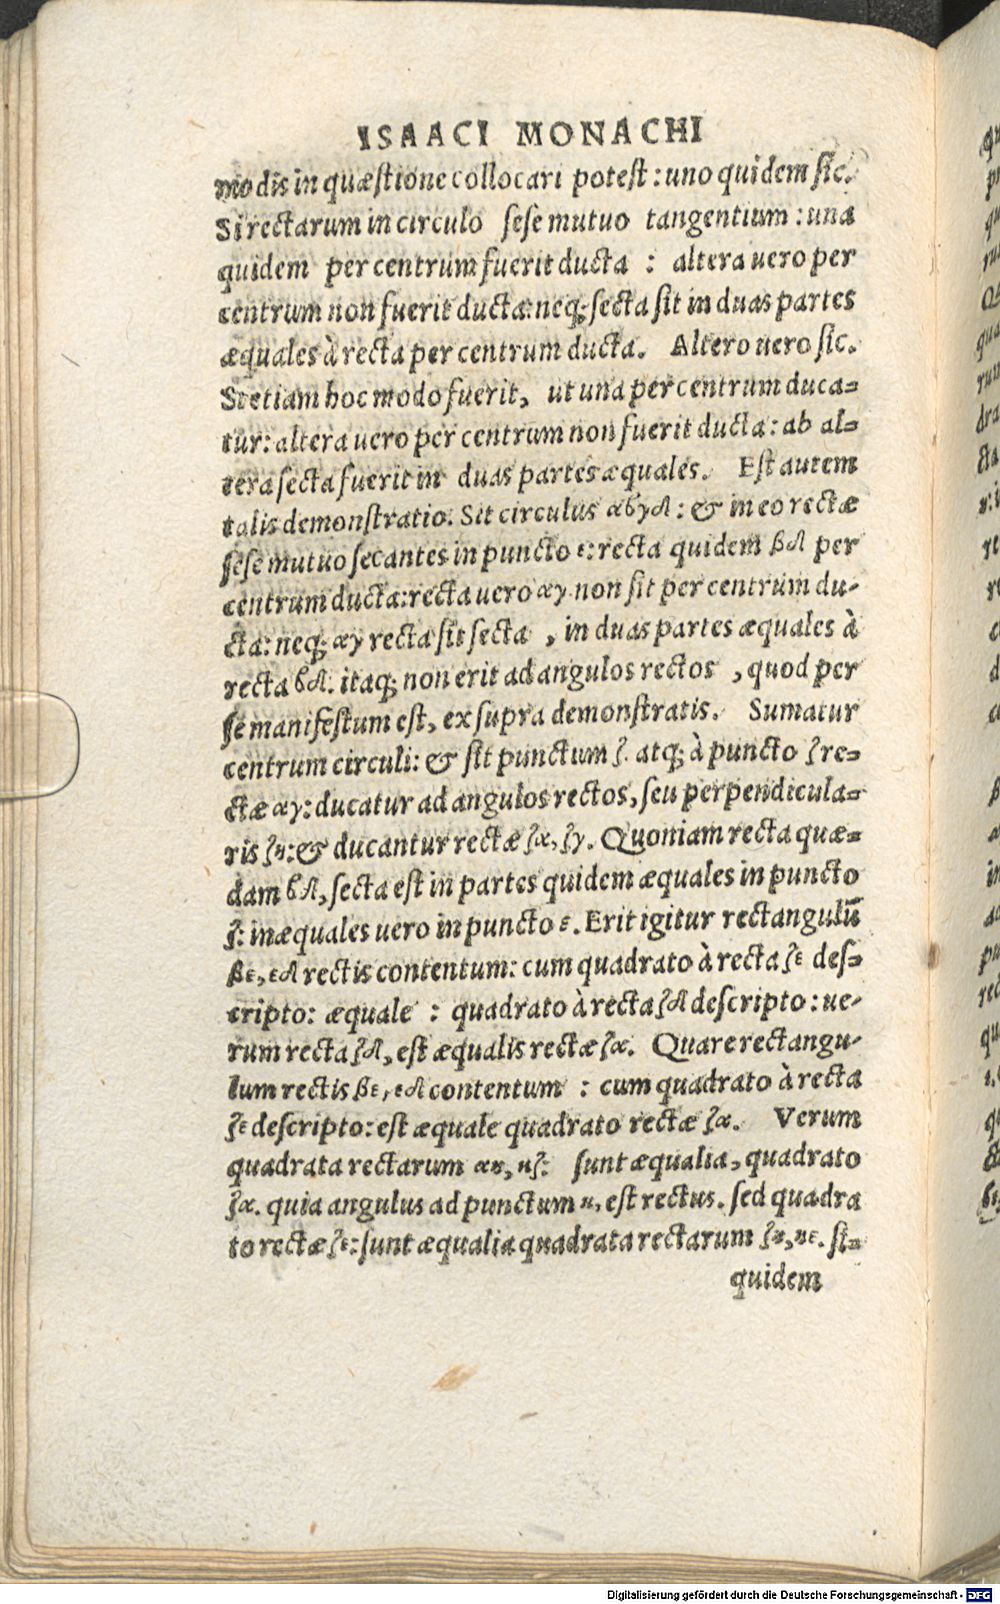 ISAACI MONACHI
modis in quæstione collocari potest: uno quidem sic.
Si rectarum in circulo sese mutuo tangentium: una
quidem per centrum fuerit ducta : altera uero per
centrum non fuerit ducta: neq; secta sit in duas partes
æquales à recta per centrum ducta. Altero uero sic.
Si etiam hoc modo fuerit, ut una per centrum duca-
tur: altera uero per centrum non fuerit ducta: ab al-
tera secta fuerit in duas partes æquales. Est autem
talis demonstratio. Sit circulus αβγδ: & in eo rectæ
sese mutuo secantes in puncto ε: recta quidem βδ per
centrum ducta: recta uero αγ non sit per centrum du-
cta: neq; αγ recta sit secta , in duas partes æquales à
recta βδ. itaq; non erit ad angulos rectos , quod per
se manifestum est, ex supra demonstratis. Sumatur
centrum circuli: & sit punctum ζ. atq; à puncto ζ re-
ctæ αγ: ducatur ad angulos rectos, seu perpendicula-
ris ζη: & ducantur rectæ ζα, ζγ. Quoniam recta quæ-
dam βδ, secta est in partes quidem æquales in puncto
ζ: inæquales uero in puncto ε. Erit igitur rectangulū
βε, εδ rectis contentum: cum quadrato à recta ζε des-
cripto: æquale : quadrato à recta ζδ descripto: ue-
rum recta ζδ, est æqualis rectæ ζα. Quare rectangu-
lum rectis βε, εδ contentum : cum quadrato à recta
ζε descripto: est æquale quadrato rectæ ζα. Verum
quadrata rectarum αη, ηζ: sunt æqualia, quadrato
ζα. quia angulus ad punctum η, est rectus. sed quadra
to rectæ ζε: sunt æqualia quadrata rectarum ζη, ηε. si-
quidem
Digitalisierung gefördert durch die Deutsche Forschungsgemeinschaft - DFG